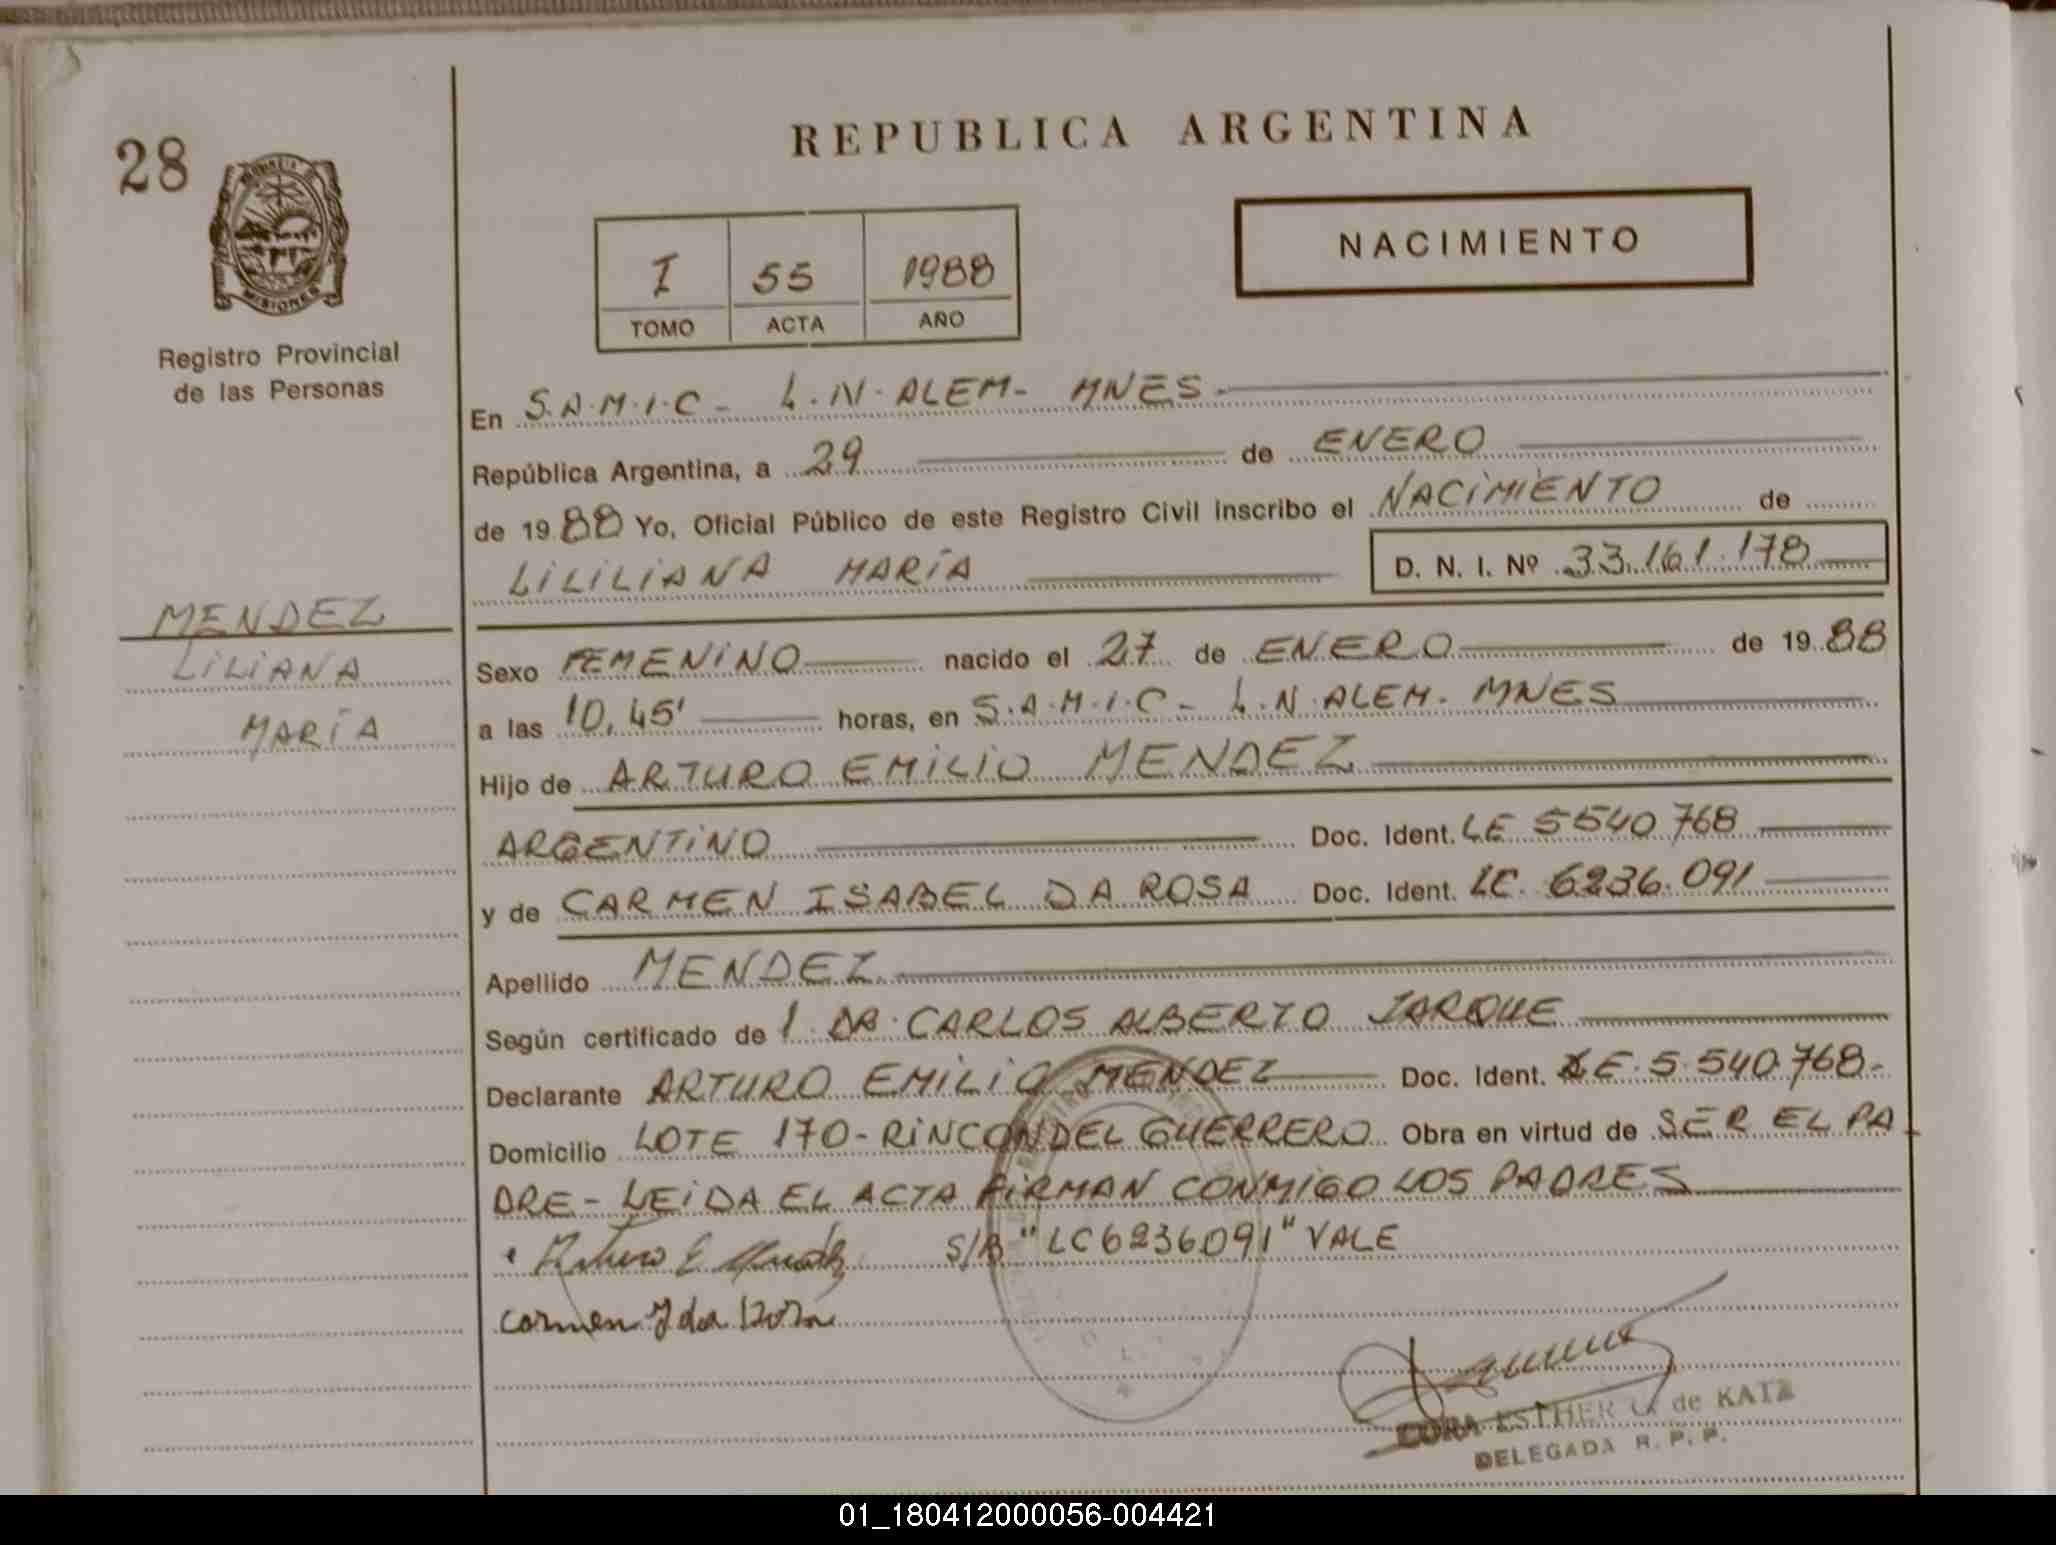 28
REPUBLICA ARGENTINA
MISIONES
I 55 1988
TOMO ACTA AÑO
NACIMIENTO
Registro Provincial
de las Personas
En S.A.M.I.C - L.N. ALEM - MNES
República Argentina, a 29 de ENERO
de 1988 Yo, Oficial Público de este Registro Civil inscribo el NACIMIENTO de
LILILIANA MARÍA D. N. I. Nº 33.161.178
MENDEZ
LILIANA
MARÍA
Sexo FEMENINO nacido el 27 de ENERO de 1988
a las 10,45' horas, en S.A.M.I.C - L.N. ALEM. MNES
Hijo de ARTURO EMILIO MENDEZ
ARGENTINO Doc. Ident. LE 5540768
y de CARMEN ISABEL DA ROSA Doc. Ident. LC. 6236.091
Apellido MENDEZ
Según certificado de 1 DR. CARLOS ALBERTO JARQUE
Declarante ARTURO EMILIO MENDEZ Doc. Ident. LE. 5.540.768-
Domicilio LOTE 170 - RINCON DEL GUERRERO Obra en virtud de SER EL PA
DRE - LEIDA EL ACTA FIRMAN CONMIGO LOS PADRES
Arturo E Mendez S/B "LC6236091" VALE
Carmen I da Rosa
CORA ESTHER G. de KATZ
DELEGADA R. P. P.
01_180412000056-004421